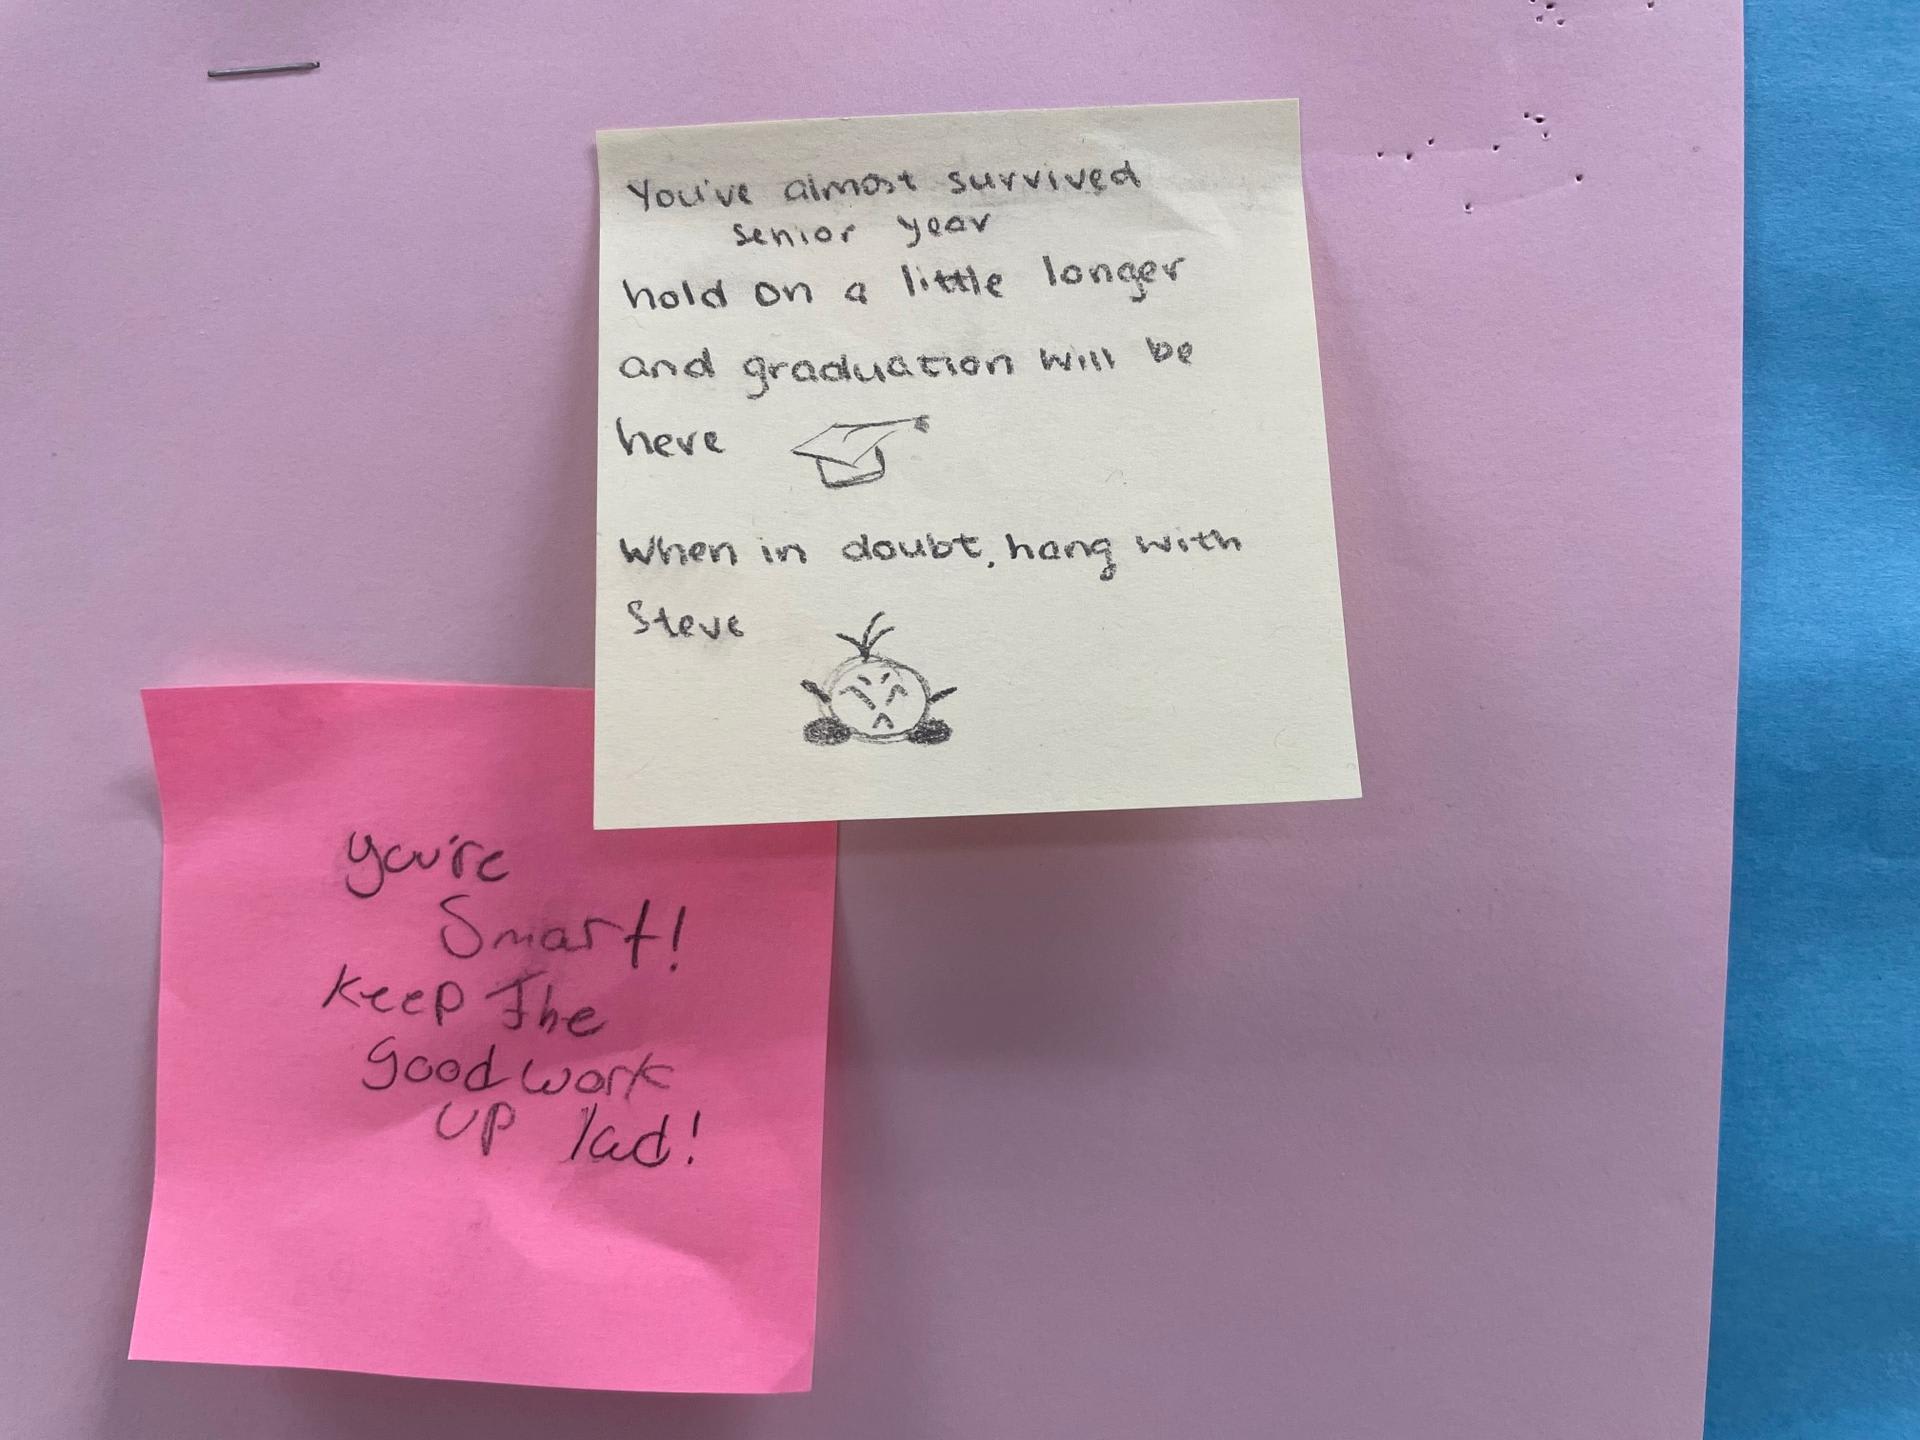 You've almost survived
senior year
hold on a little longer
and graduation will be
here
When in doubt, hang with
Steve
you're
Smart!
Keep The
good work
up lad!